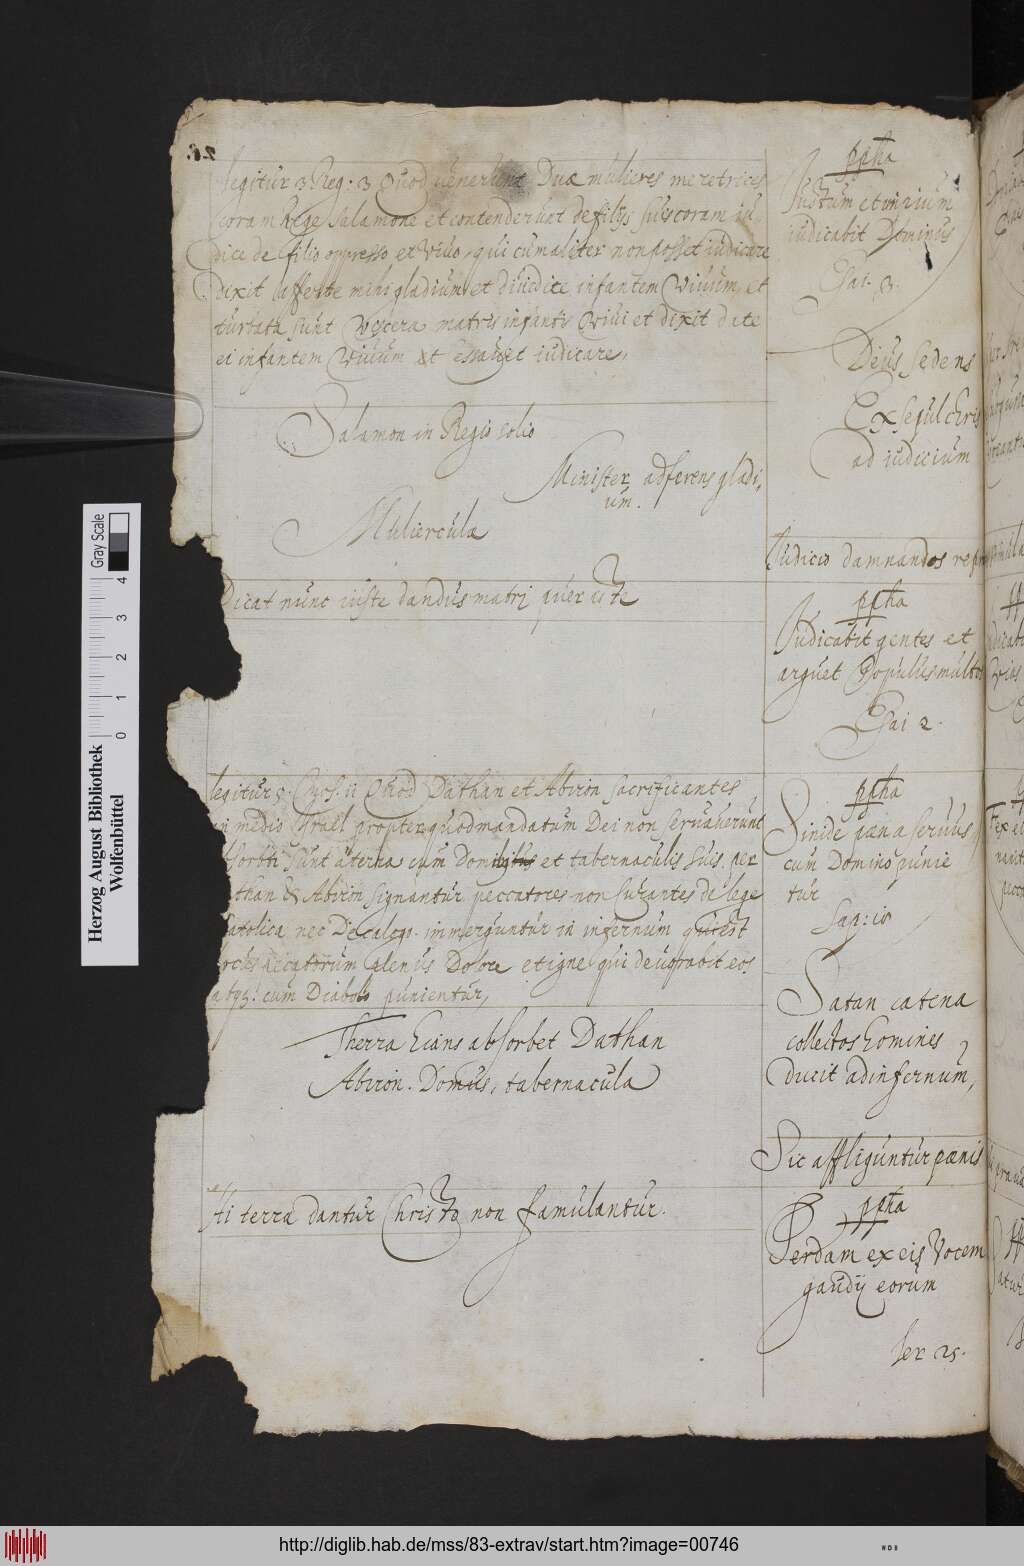 legitur 3 Reg: 3 Quod venerunt Duæ mulieres meretrices
coram Rege Salamone et contenderunt de filijs suis coram iu
dice de filio oppresso et vivo, qui cum aliter non posset iudicare
dixit afferte mihi gladium et dividite infantem Vivum, et
turbata sunt Viscera matris infantis Vivi et dixit date
ei infantem Vivum iudicare,
Salamon in Regio solio
Minister adferens gladi,
um.
Mulierculæ
Dicat nunc iuste dandus matri puer iste
legitur Quod Dathan et Abiron sacrificantes
in medio Israel propter quod mandatum Dei non servaverunt
absorbti sunt a terra cum et tabernaculis suis. per
than & Abiron signantur peccatores non curantes de lege
atolica nec Decalogo. immerguntur in infernum qui est
plenus Dolore et igne qui devorabit eos
cum Diabolo punientur,
Therra hians absorbet Dathan
Abiron. Domus, tabernacula
Hi terra dantur Christo non famulantur.
ppha
Iustum et impium
iudicabit Dominus
Esai. 3.
Deus sedens
Ex sepulchris
ad iudicium
Iudicio damnandos
ppha
Iudicabit gentes et
arguet Populus multos
Esai 2.
ppha
Simile pæna servus
cum Domino punie
tur
Sap:
Satan catena
collectos homines
ducit ad infernum,
Sic affliguntur pænis
ppha
Perdam ex eis Vocem
gaudij eorum
Jer 25.
Gray Scale
0 1 2 3 4
Herzog August Bibliothek
Wolfenbüttel
http://diglib.hab.de/mss/83-extrav/start.htm?image=00746